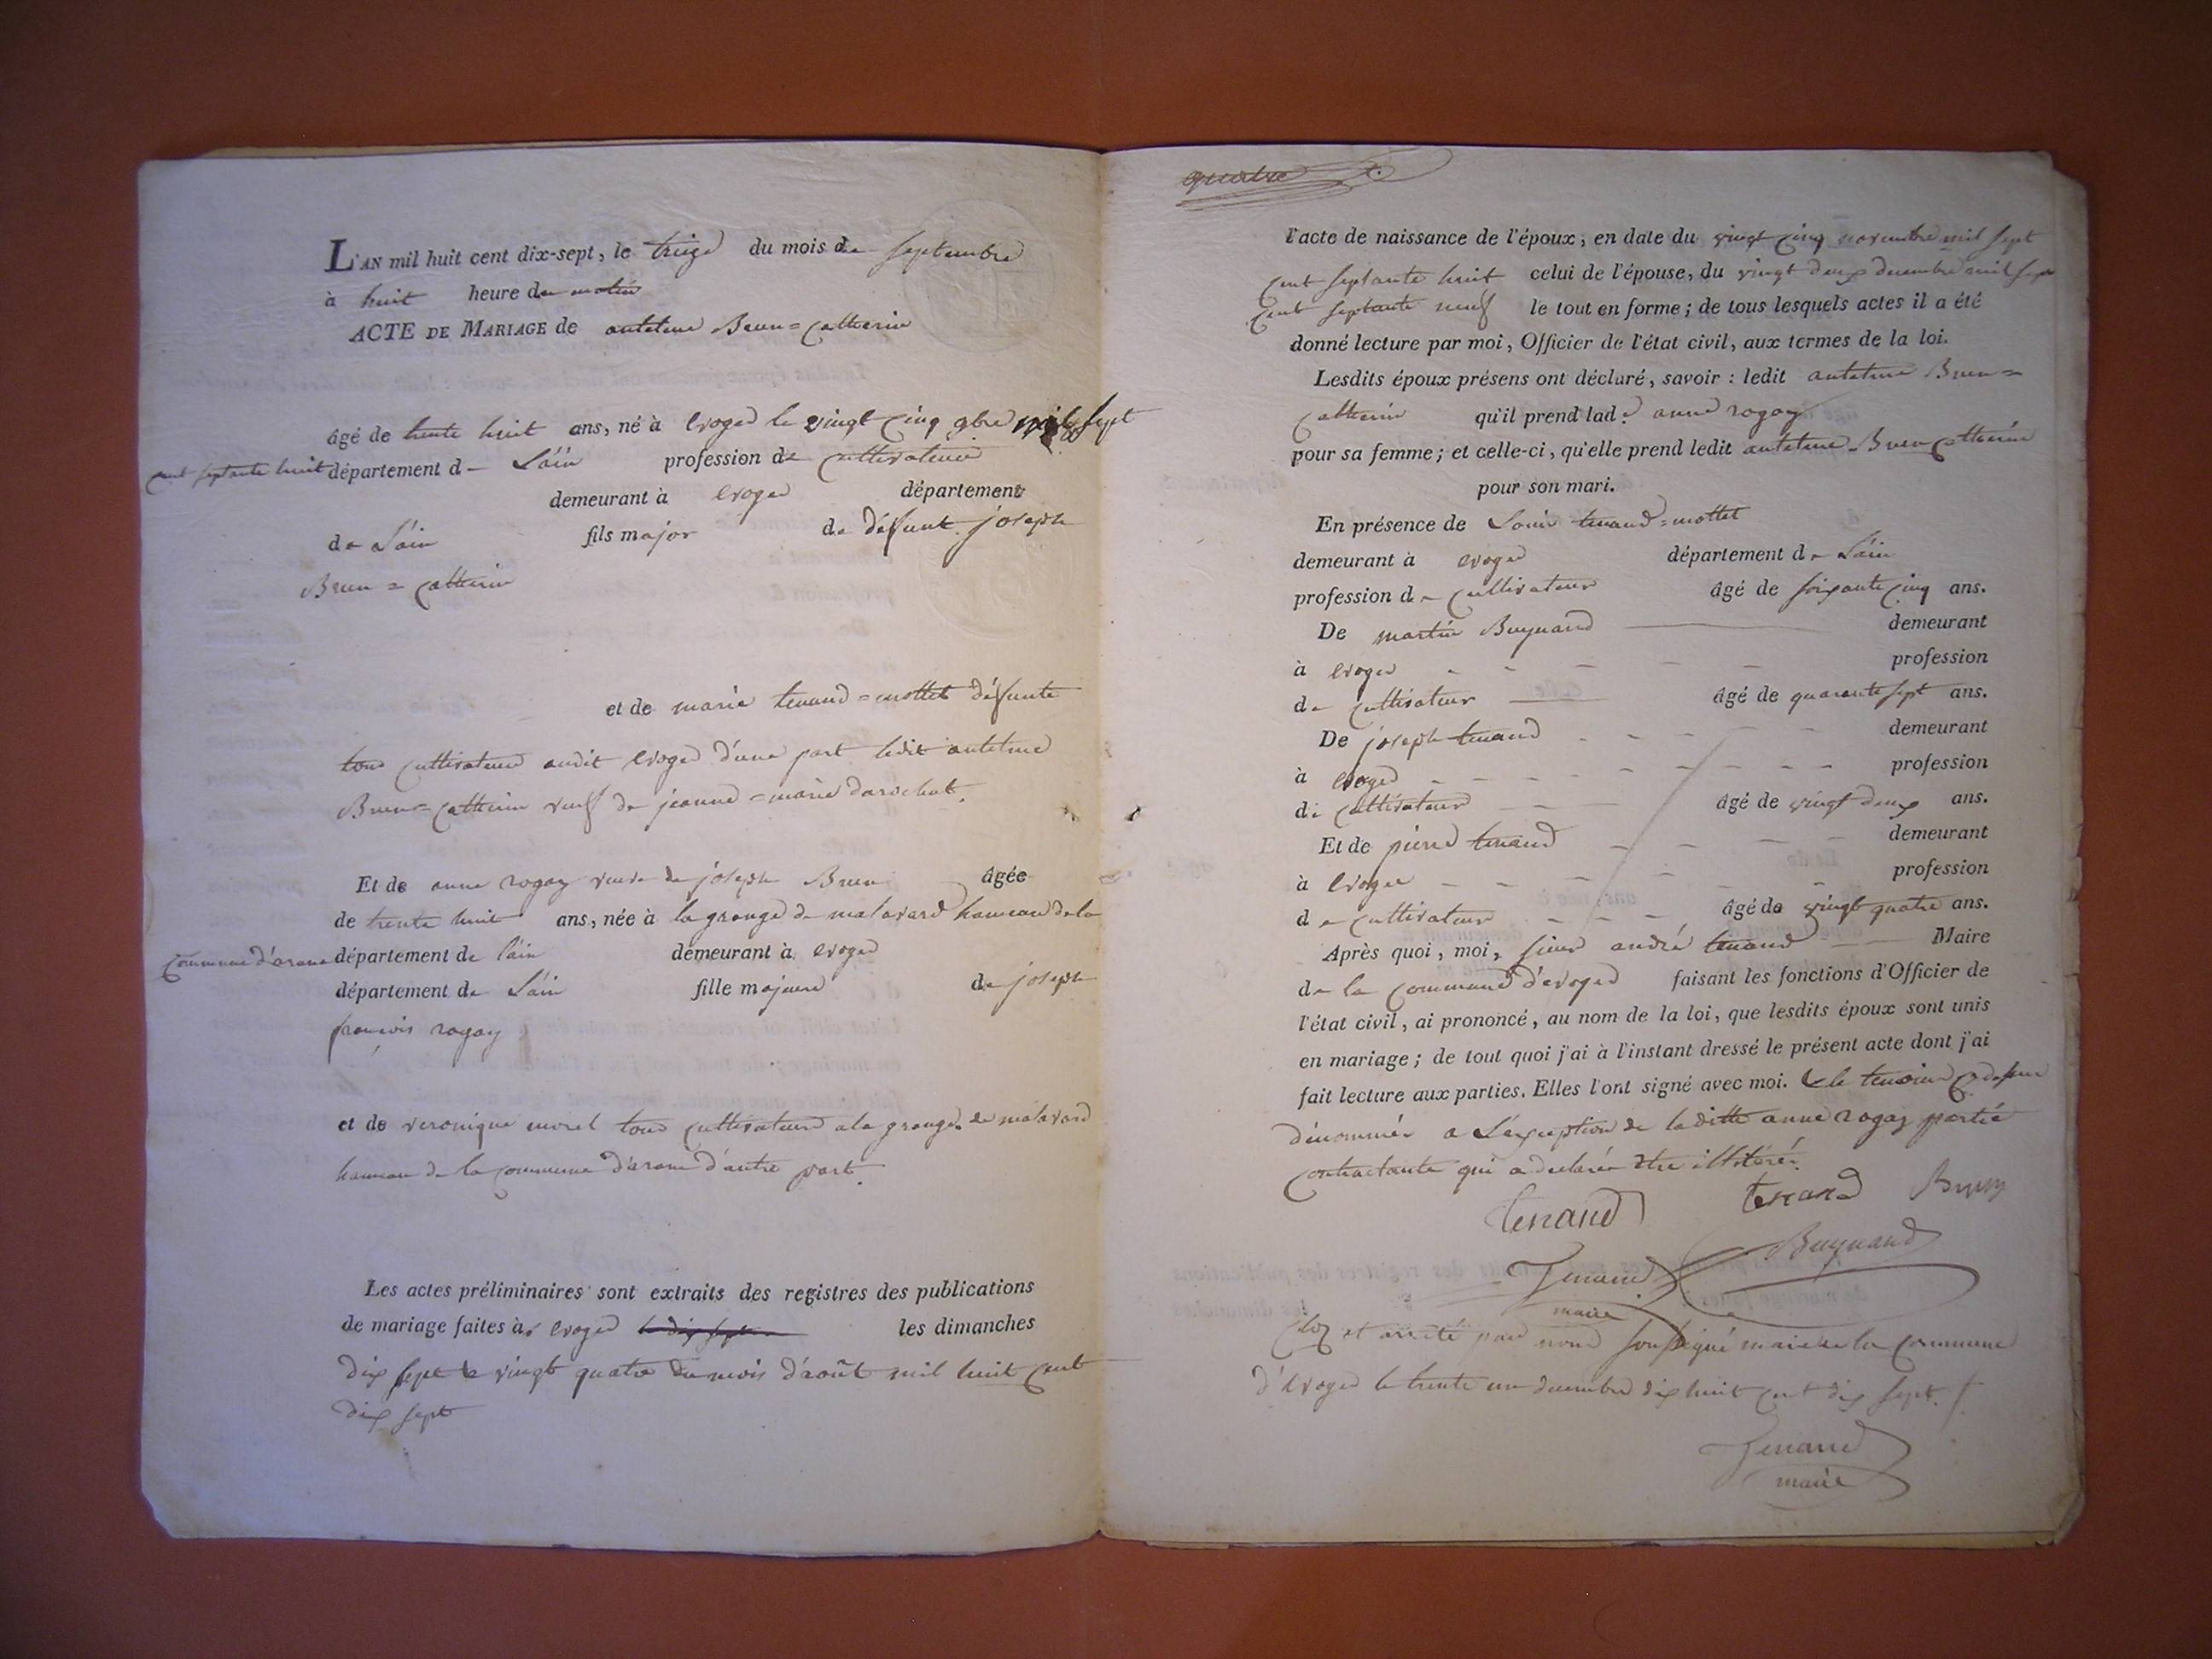 L'AN mil huit cent dix-sept, le treize du mois de septembre
à huit heure du matin
ACTE DE MARIAGE de antelme Brun=Catherin
âgé de trente huit ans, né à Evoges le vingt cinq 9bre mil sept
cent septante huit département de L'ain profession de cultivateur
demeurant à evoges département
de L'ain fils major de défunt joseph
Brun=Catherin
et de marie tenand=mottet défunte
tous cultivateurs audit Evoges d'une part ledit antelme
Brun=Catherin veuf de jeanne=marie
Et de anne rogay veuve de joseph Brun âgée
de trente huit ans, née à la grange de malavard hameau de la
commune d'arane département de l'ain demeurant à evoges
département de L'ain fille majeure de joseph
françois rogay
et de veronique morel tous cultivateurs a la grange de malavard
hameau de la commune d'arane d'autre part.
Les actes préliminaires sont extraits des registres des publications
de mariage faites à evoges les dimanches
dix sept & vingt quatre du mois d'août mil huit cent
dix sept
quatre
l'acte de naissance de l'époux, en date du vingt cinq novembre mil sept
cent septante huit celui de l'épouse, du vingt deux decembre mil sept
cent septante neuf le tout en forme; de tous lesquels actes il a été
donné lecture par moi, Officier de l'état civil, aux termes de la loi.
Lesdits époux présens ont déclaré, savoir : ledit antelme Brun=
Catherin qu'il prend lade anne rogay
pour sa femme; et celle-ci, qu'elle prend ledit antelme Brun Catherin
pour son mari.
En présence de Louis tenand=mottet
demeurant à evoges département de L'ain
profession de cultivateur âgé de soixante cinq ans.
De martin Buynand demeurant
à evoges profession
de cultivateur âgé de quarante sept ans.
De joseph tenand demeurant
à evoges profession
de cultivateur âgé de vingt deux ans.
Et de pierre tenand demeurant
à Evoges profession
de cultivateur âgé de vingt quatre ans.
Après quoi, moi, sieur andré tenand Maire
de la commune d'évoges faisant les fonctions d'Officier de
l'état civil, ai prononcé, au nom de la loi, que lesdits époux sont unis
en mariage; de tout quoi j'ai à l'instant dressé le présent acte dont j'ai
fait lecture aux parties. Elles l'ont signé avec moi. & le temoins cy dessus
dénommés a L'exception de laditte anne rogay partie
contractante qui a declarée être illitérée.
tenand tenand
Tenand Buynand
maire
Clos et arreté par nous soussigné maire de la commune
d'Evoges le trente un decembre dix huit cent dix sept.
Tenand
maire